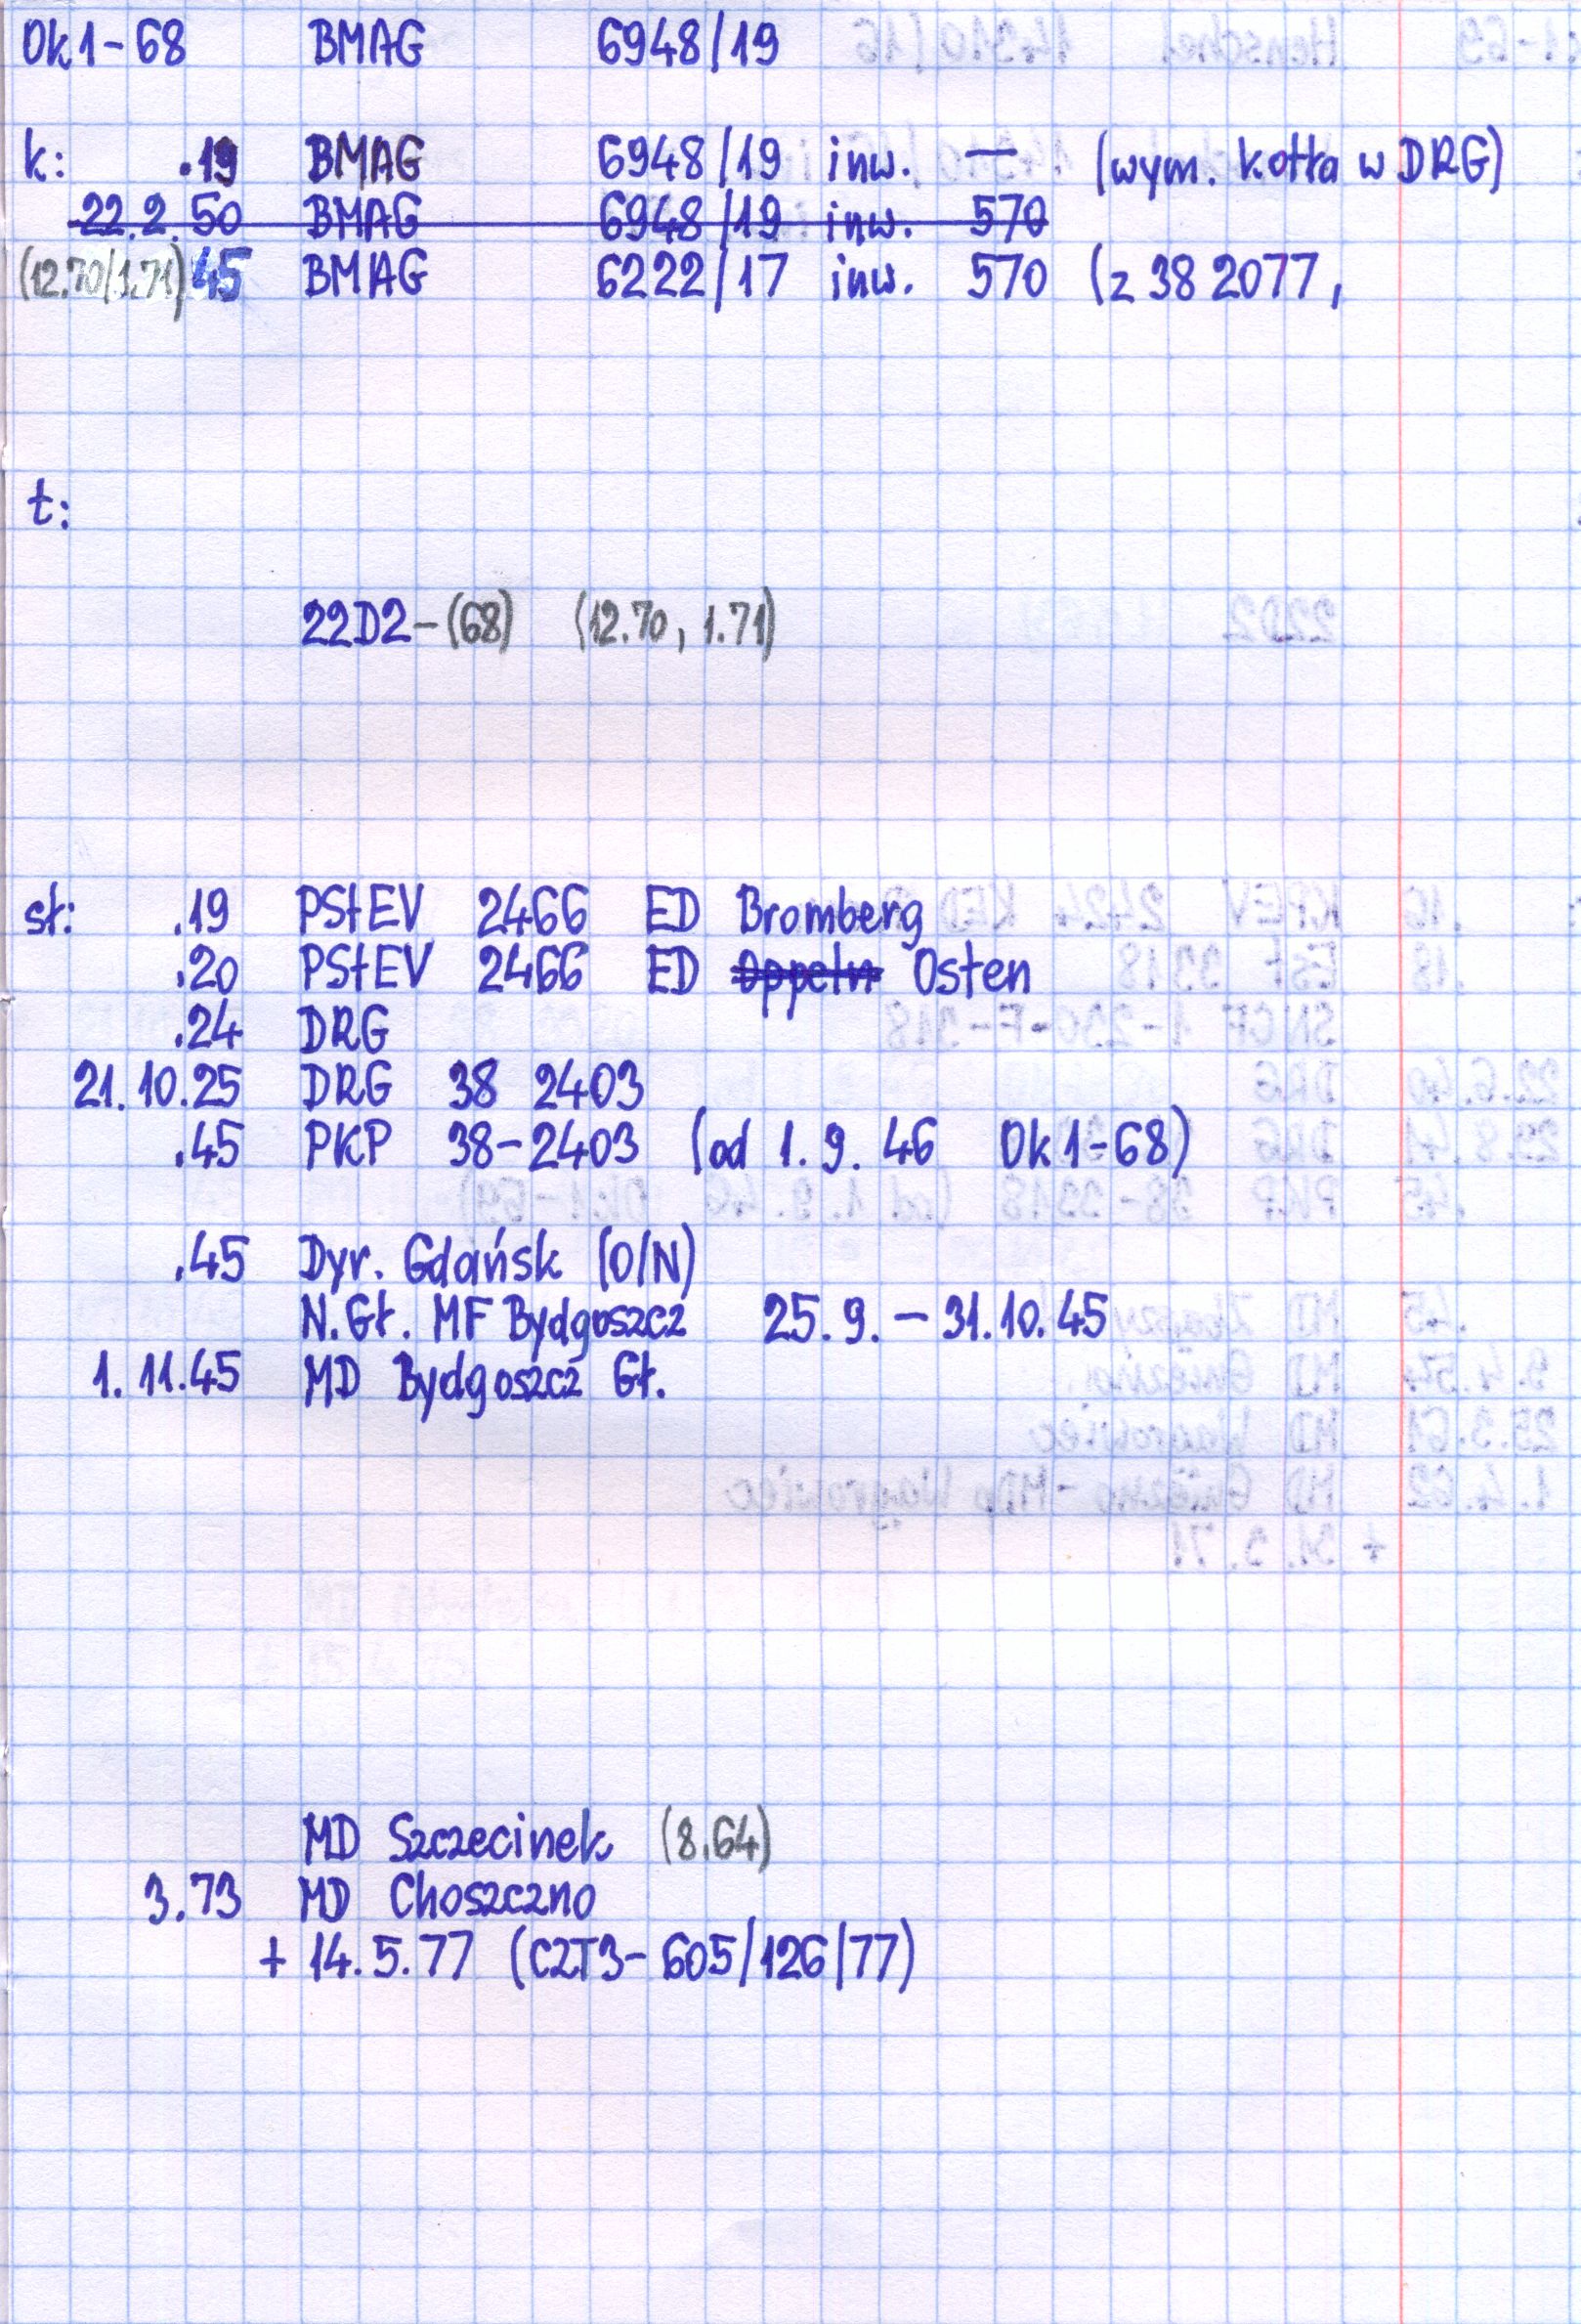 Ok1-68 BMAG 6948/19
k: .19 BMAG 6948/19 inw. — (wym. kotła w DRG)
22.2.50 BMAG 6948/19 inw. 570
(12.70/1.71) 45 BMAG 6222/17 inw. 570 (z 38 2077,
t:
22D2-(68) (12.70, 1.71)
st: .19 PStEV 2466 ED Bromberg
.20 PStEV 2466 ED Oppeln Osten
.24 DRG
21.10.25 DRG 38 2403
.45 PKP 38-2403 (od 1.9.46 Ok1-68)
.45 Dyr. Gdańsk (O/N)
N.Gł. MF Bydgoszcz 25.9.-31.10.45
1.11.45 MD Bydgoszcz Gł.
MD Szczecinek (8.64)
3.73 MD Choszczno
+ 14.5.77 (C2T3-605/126/77)